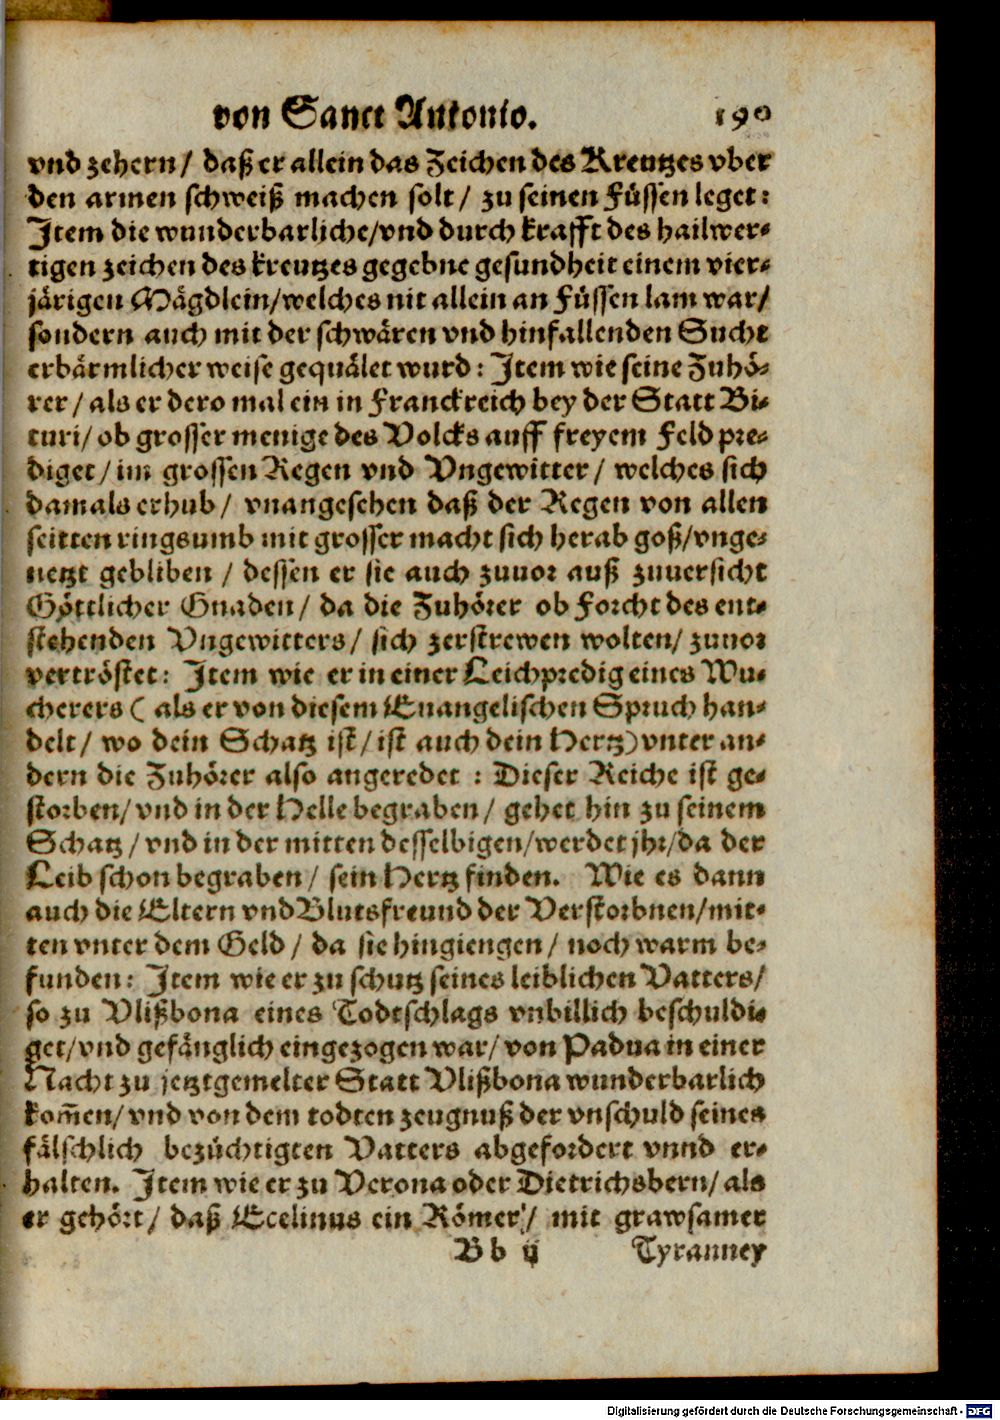 von Sanct Antonio. 190
vnd zehern/ daß er allein das Zeichen des Kreutzes vber
den armen schweiß machen solt/ zu seinen Füssen leget:
Item die wunderbarliche/vnd durch krafft des hailwer-
tigen zeichen des kreutzes gegebne gesundheit einem vier-
järigen Mägdlein/welches nit allein an Füssen lam war/
sondern auch mit der schwären vnd hinfallenden Sucht
erbärmlicher weise gequälet wurd: Item wie seine Zuhö-
rer/ als er dero mal ein in Franckreich bey der Statt Bi-
turi/ ob grosser menige des Volcks auff freyem Feld pre-
diget/ im grossen Regen vnd Vngewitter/ welches sich
damals erhub/ vnangesehen daß der Regen von allen
seitten ringsumb mit grosser macht sich herab goß/vnge-
netzt gebliben/ dessen er sie auch zuuor auß zuuersicht
Göttlicher Gnaden/ da die Zuhörer ob Forcht des ent-
stehenden Vngewitters/ sich zerstrewen wolten/ zuuor
vertröstet: Item wie er in einer Leichpredig eines Wu-
cherers ( als er von diesem Euangelischen Spruch han-
delt/ wo dein Schatz ist/ ist auch dein Hertz) vnter an-
dern die Zuhörer also angeredet : Dieser Reiche ist ge-
storben/ vnd in der Helle begraben/ gehet hin zu seinem
Schatz/ vnd in der mitten desselbigen/werdet jhr/da der
Leib schon begraben/ sein Hertz finden. Wie es dann
auch die Eltern vnd Blutsfreund der Verstorbnen/mit-
ten vnter dem Geld/ da sie hingiengen/ noch warm be-
funden: Item wie er zu schutz seines leiblichen Vatters/
so zu Vlißbona eines Todtschlags vnbillich beschuldi-
get/vnd gefänglich eingezogen war/ von Padua in einer
Nacht zu jetztgemelter Statt Vlißbona wunderbarlich
kom̃en/ vnd von dem todten zeugnuß der vnschuld seines
fälschlich bezüchtigten Vatters abgefordert vnnd er-
halten. Item wie er zu Verona oder Dietrichsbern/ als
er gehört/ daß Ecelinus ein Römer/ mit grawsamer
B b ij Tyranney
Digitalisierung gefördert durch die Deutsche Forschungsgemeinschaft - DFG